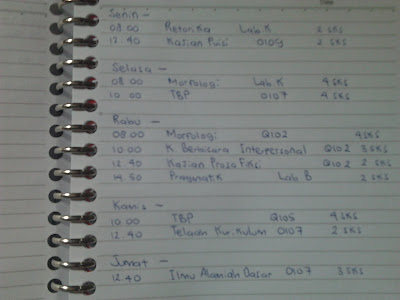 Senin -
08.00 Retorika Lab. K 2 SKS
12.40 Kajian Puisi O109 2 SKS
Selasa -
08.00 Morfologi Lab. K 4 SKS
10.00 TBP O107 4 SKS
Rabu -
08.00 Morfologi Q102 4 SKS
10.00 K. Berbicara Interpersonal Q102 3 SKS
12.40 Kajian Prosa Fiksi Q102 2 SKS
14.50 Pragmatik Lab B 2 SKS
Kamis -
10.00 TBP Q105 4 SKS
12.40 Telaah Kurikulum O107 2 SKS
Jumat -
12.40 Ilmu Alamiah Dasar O107 3 SKS